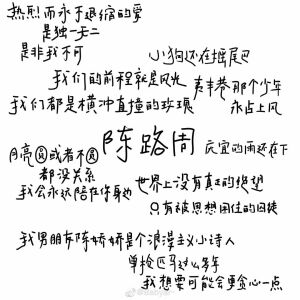 热烈而永于退缩的爱
是独一无二
是非我不可
小狗还在摇尾巴
我们的前程就是风光
青丰巷那个少年
我们都是横冲直撞的玫瑰
永占上风
陈路周
月亮圆或者不圆
都没关系
庆宜的雨还在下
我会永远陪在你身边
世界上没有真正的绝望
只有被思想困住的囚徒
我男朋友陈娇娇是个浪漫主义小诗人
单枪匹马这么多年
我想要可能会更贪心一点